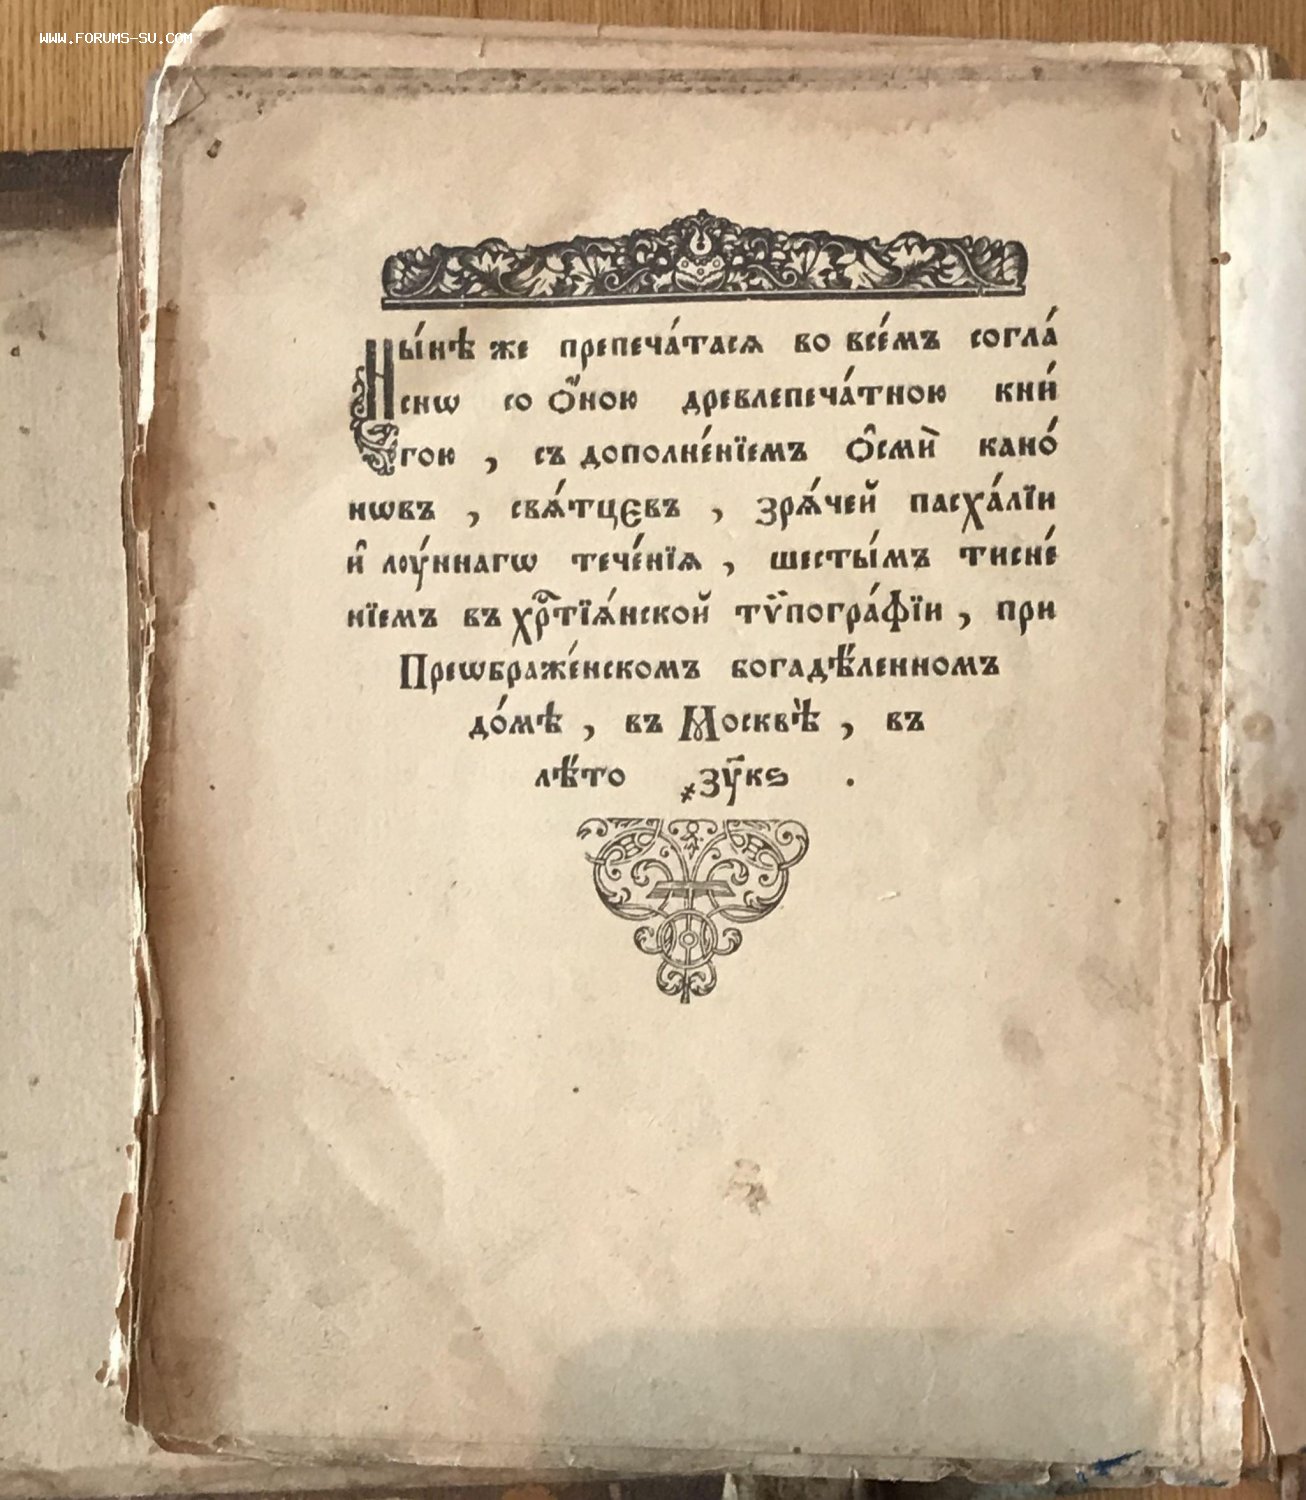 WWW.FORUMS-SU.COM
Ны́нѣ же препеча́тасѧ во всє́мъ согла́
снѡ со ѻ҆́ною древлепеча́тною кни́
гою , съ дополне́нїемъ ѻ҆смѝ кано́
нѡвъ , свѧ́тцєвъ , зрѧ́чей пасха́лїи
и҆ лоу́ннагѡ тече́нїѧ , шесты́мъ тисне́
нїемъ въ хрⷭ҇тїѧ́нской тѷпогра́фїи , при
Преѡбраже́нскомъ богадѣ́ленномъ
до́мѣ , въ Москвѣ̀ , въ
лѣ́то ҂зу҃кѕ .